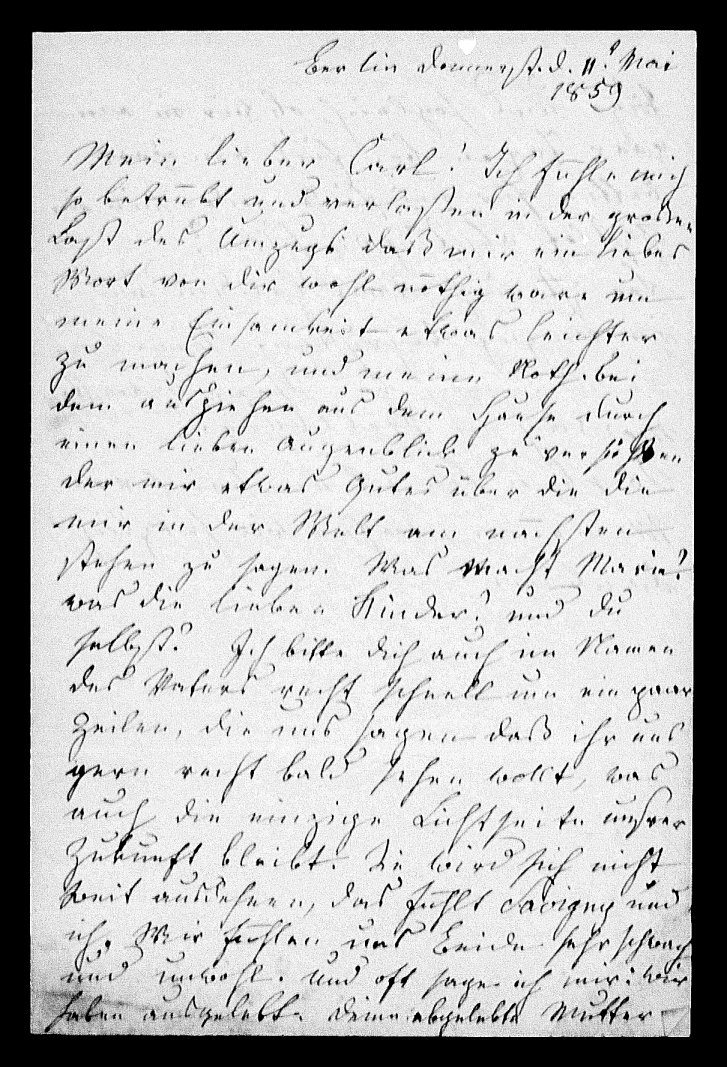 Berlin Donnerst. d. 11t Mai
1859
Mein lieber Carl! Ich fühle mich
so betrübt und verlaßen in der großen
Last des Umzugs daß mir ein liebes
Wort von dir wohl nöthig wäre um
meine Einsamkeit etwas leichter
zu machen, und meine Noth bei
dem ausziehen aus dem Hause durch
einen lieben Augenblick zu versüßen
der mir etwas Gutes über die die
mir in der Welt am nächsten
stehen zu sagen. Was macht Marie?
was die lieben Kinder? und du
selbst? Ich bitte dich auch im Namen
des Vaters recht schnell um ein paar
Zeilen, die uns sagen daß ihr uns
gern recht bald sehen wollt, was
auch die einzige Lichtseite unsrer
Zukunft bleibt. Sie wird sich nicht
weit ausdehnen, das fühlt Savigny und
ich. Wir fühlen uns Beide sehr schwach
und unwohl. Und oft sage ich mir: wir
haben ausgelebt. Deine abgelebte Mutter